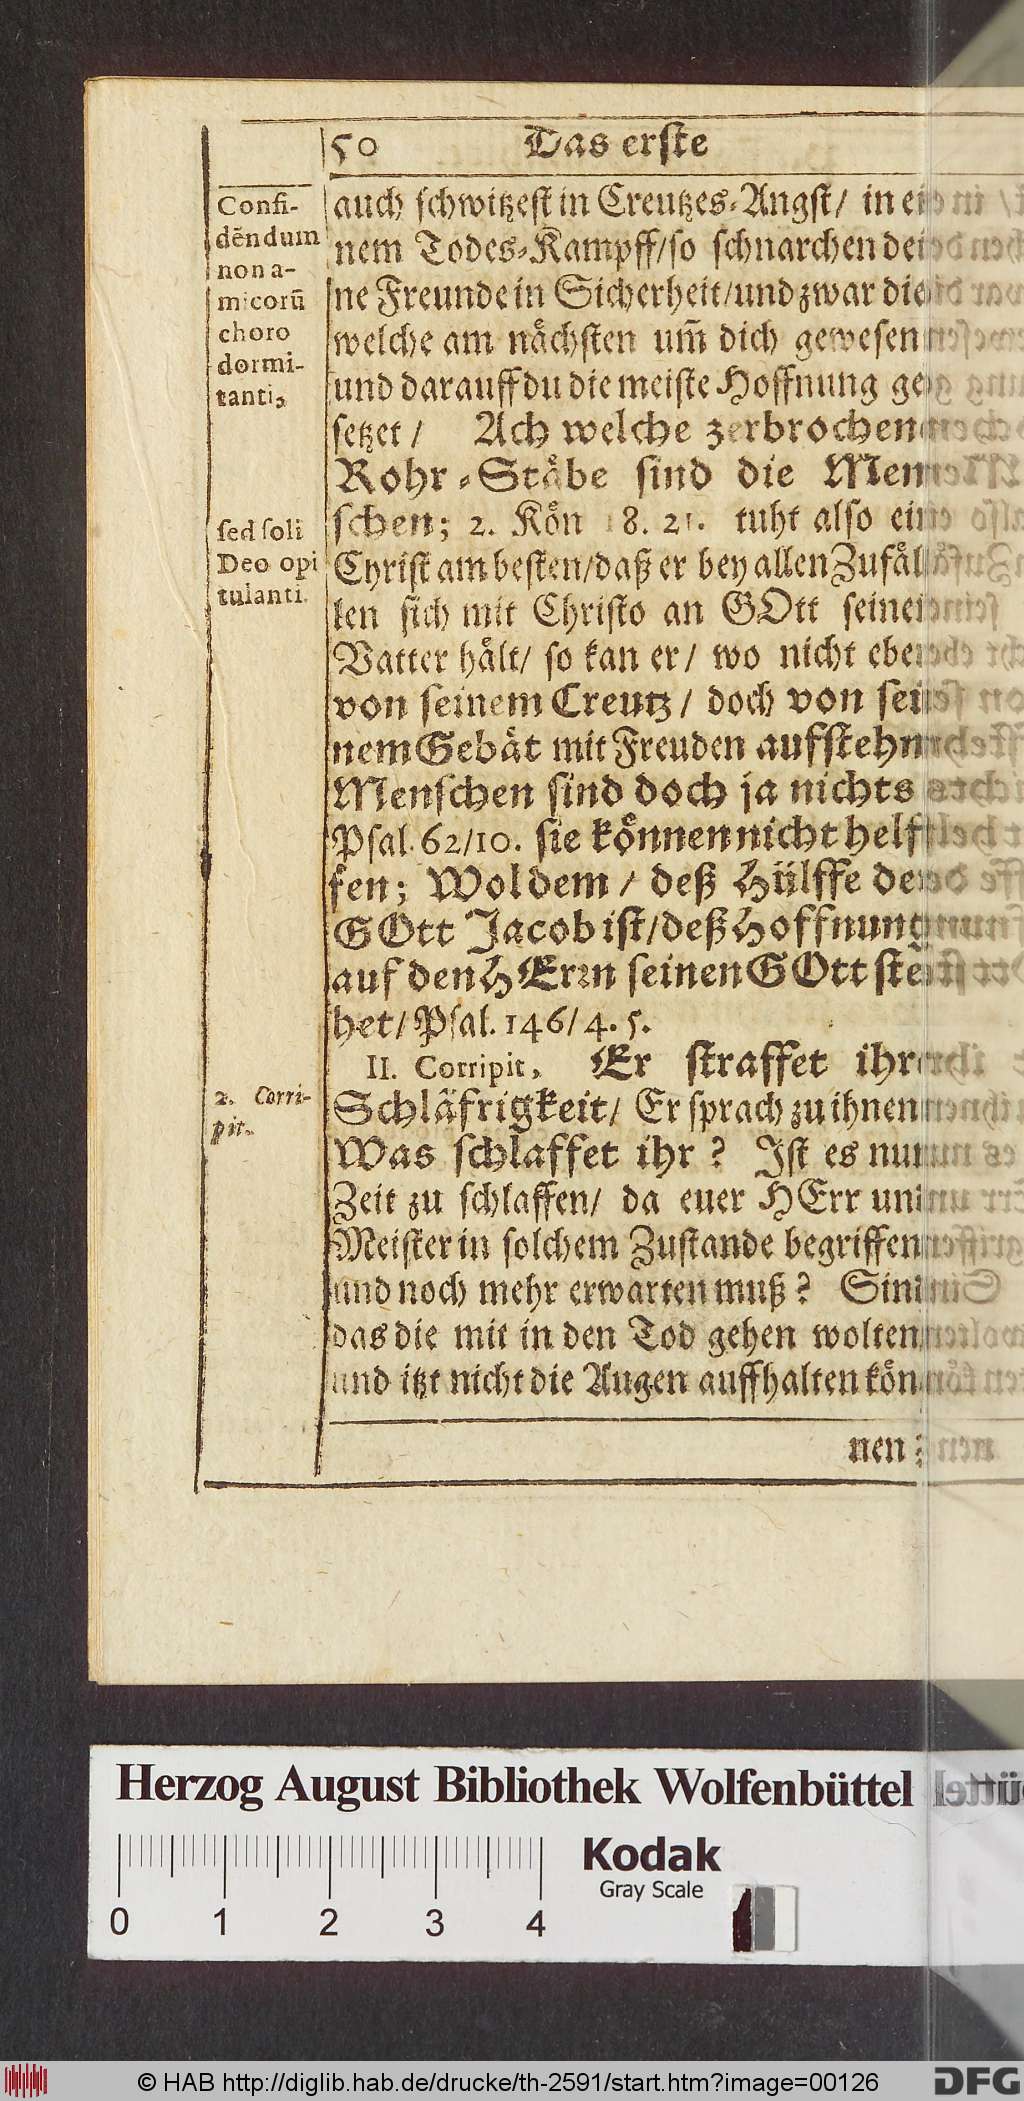 50 Das erste
Confi-
dēndum
non a-
micorū
choro
dormi-
tanti,
sed soli
Deo opi
tulanti.
2. Corri-
pit.
auch schwitzest in Creutzes-Angst/ in ei
nem Todes-Kampff/so schnarchen dei
ne Freunde in Sicherheit/und zwar die
welche am nächsten um̄ dich gewesen
und darauff du die meiste Hoffnung ge
setzet / Ach welche zerbrochen
Rohr-Stäbe sind die Men
schen; 2. Kön 18. 21. tuht also ein
Christ am besten/daß er bey allen Zufäl
len sich mit Christo an GOtt seinen
Vatter hält/ so kan er/ wo nicht eben
von seinem Creutz / doch von sei
nem Gebät mit Freuden aufstehn
Menschen sind doch ja nichts
Psal. 62/10. sie können nicht helf
fen; Wol dem / deß Hülffe der
GOtt Jacob ist/deß Hoffnung
auf den HErrn seinen GOtt ste
het/ Psal. 146/4. 5.
II. Corripit, Er straffet ihre
Schläfrigkeit/ Er sprach zu ihnen
Was schlaffet ihr ? Ist es nun
Zeit zu schlaffen/ da euer HErr und
Meister in solchem Zustande begriffen
und noch mehr erwarten muß ? Sind
das die mit in den Tod gehen wolten
und itzt nicht die Augen auffhalten kön
nen ?
Herzog August Bibliothek Wolfenbüttel
0 1 2 3 4
Kodak
Gray Scale
© HAB http://diglib.hab.de/drucke/th-2591/start.htm?image=00126
DFG